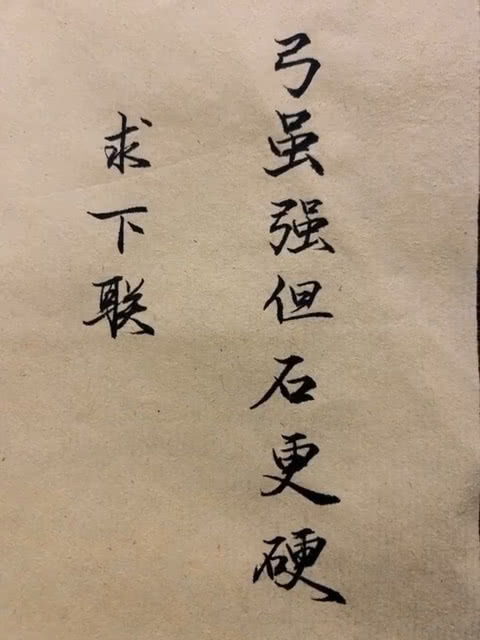 弓虽强但石更硬
求下联